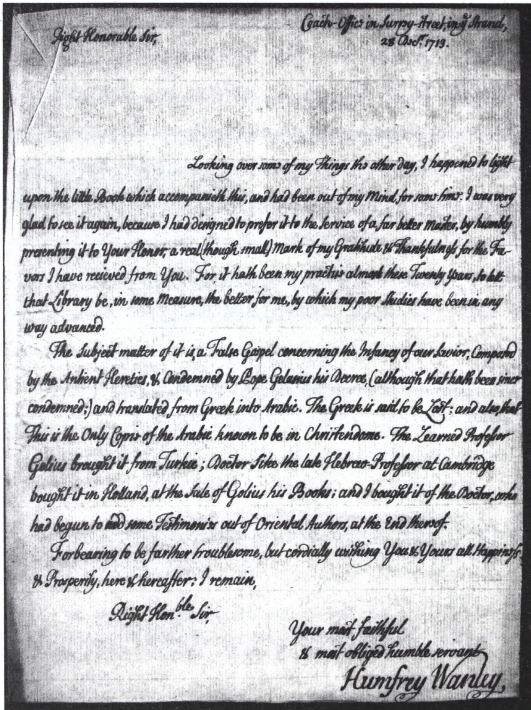 Coach-Office in Surrey-street, in yᵉ Strand,
Right Honorable Sir,
28 Decr. 1713.
Looking over some of my Things the other day, I happened to light
upon the little Book which accompanieth this, and had been out of my Mind for some time. I was very
glad to see it again, because I had designed to prefer it to the Service of a far better Master, by humbly
presenting it to Your Honor, a real (though small) Mark of my Gratitude & Thankfulness for the Fa-
vors I have recieved from You. For it hath been my practise almost these Twenty years, to lett
that Library be, in some Measure, the better for me, by which my poor Studies have been in any
way advanced.
The Subject matter of it is, a False Gospel concerning the Infancy of our Savior, Composed
by the Antient Heretics, & Condemned by Pope Gelasius his Decree, (although that hath been since
condemned;) and translated from Greek into Arabic. The Greek is said to be Lost: and also, that
This is the Only Copie of the Arabic known to be in Christendome. The Learned Professor
Golius brought it from Turkie; Doctor Sike the late Hebrew-Professor at Cambridge
bought it in Holland, at the Sale of Golius his Books; and I bought it of the Doctor, who
had begun to add some Testimonies out of Oriental Authors, at the End thereof.
Forbearing to be farther troublesome, but cordially wishing You & Yours all Happiness,
& Prosperity, here & hereafter; I remain,
Right Hon.ble Sir,
Your most faithful
& most obliged humble servant
Humfrey Wanley.